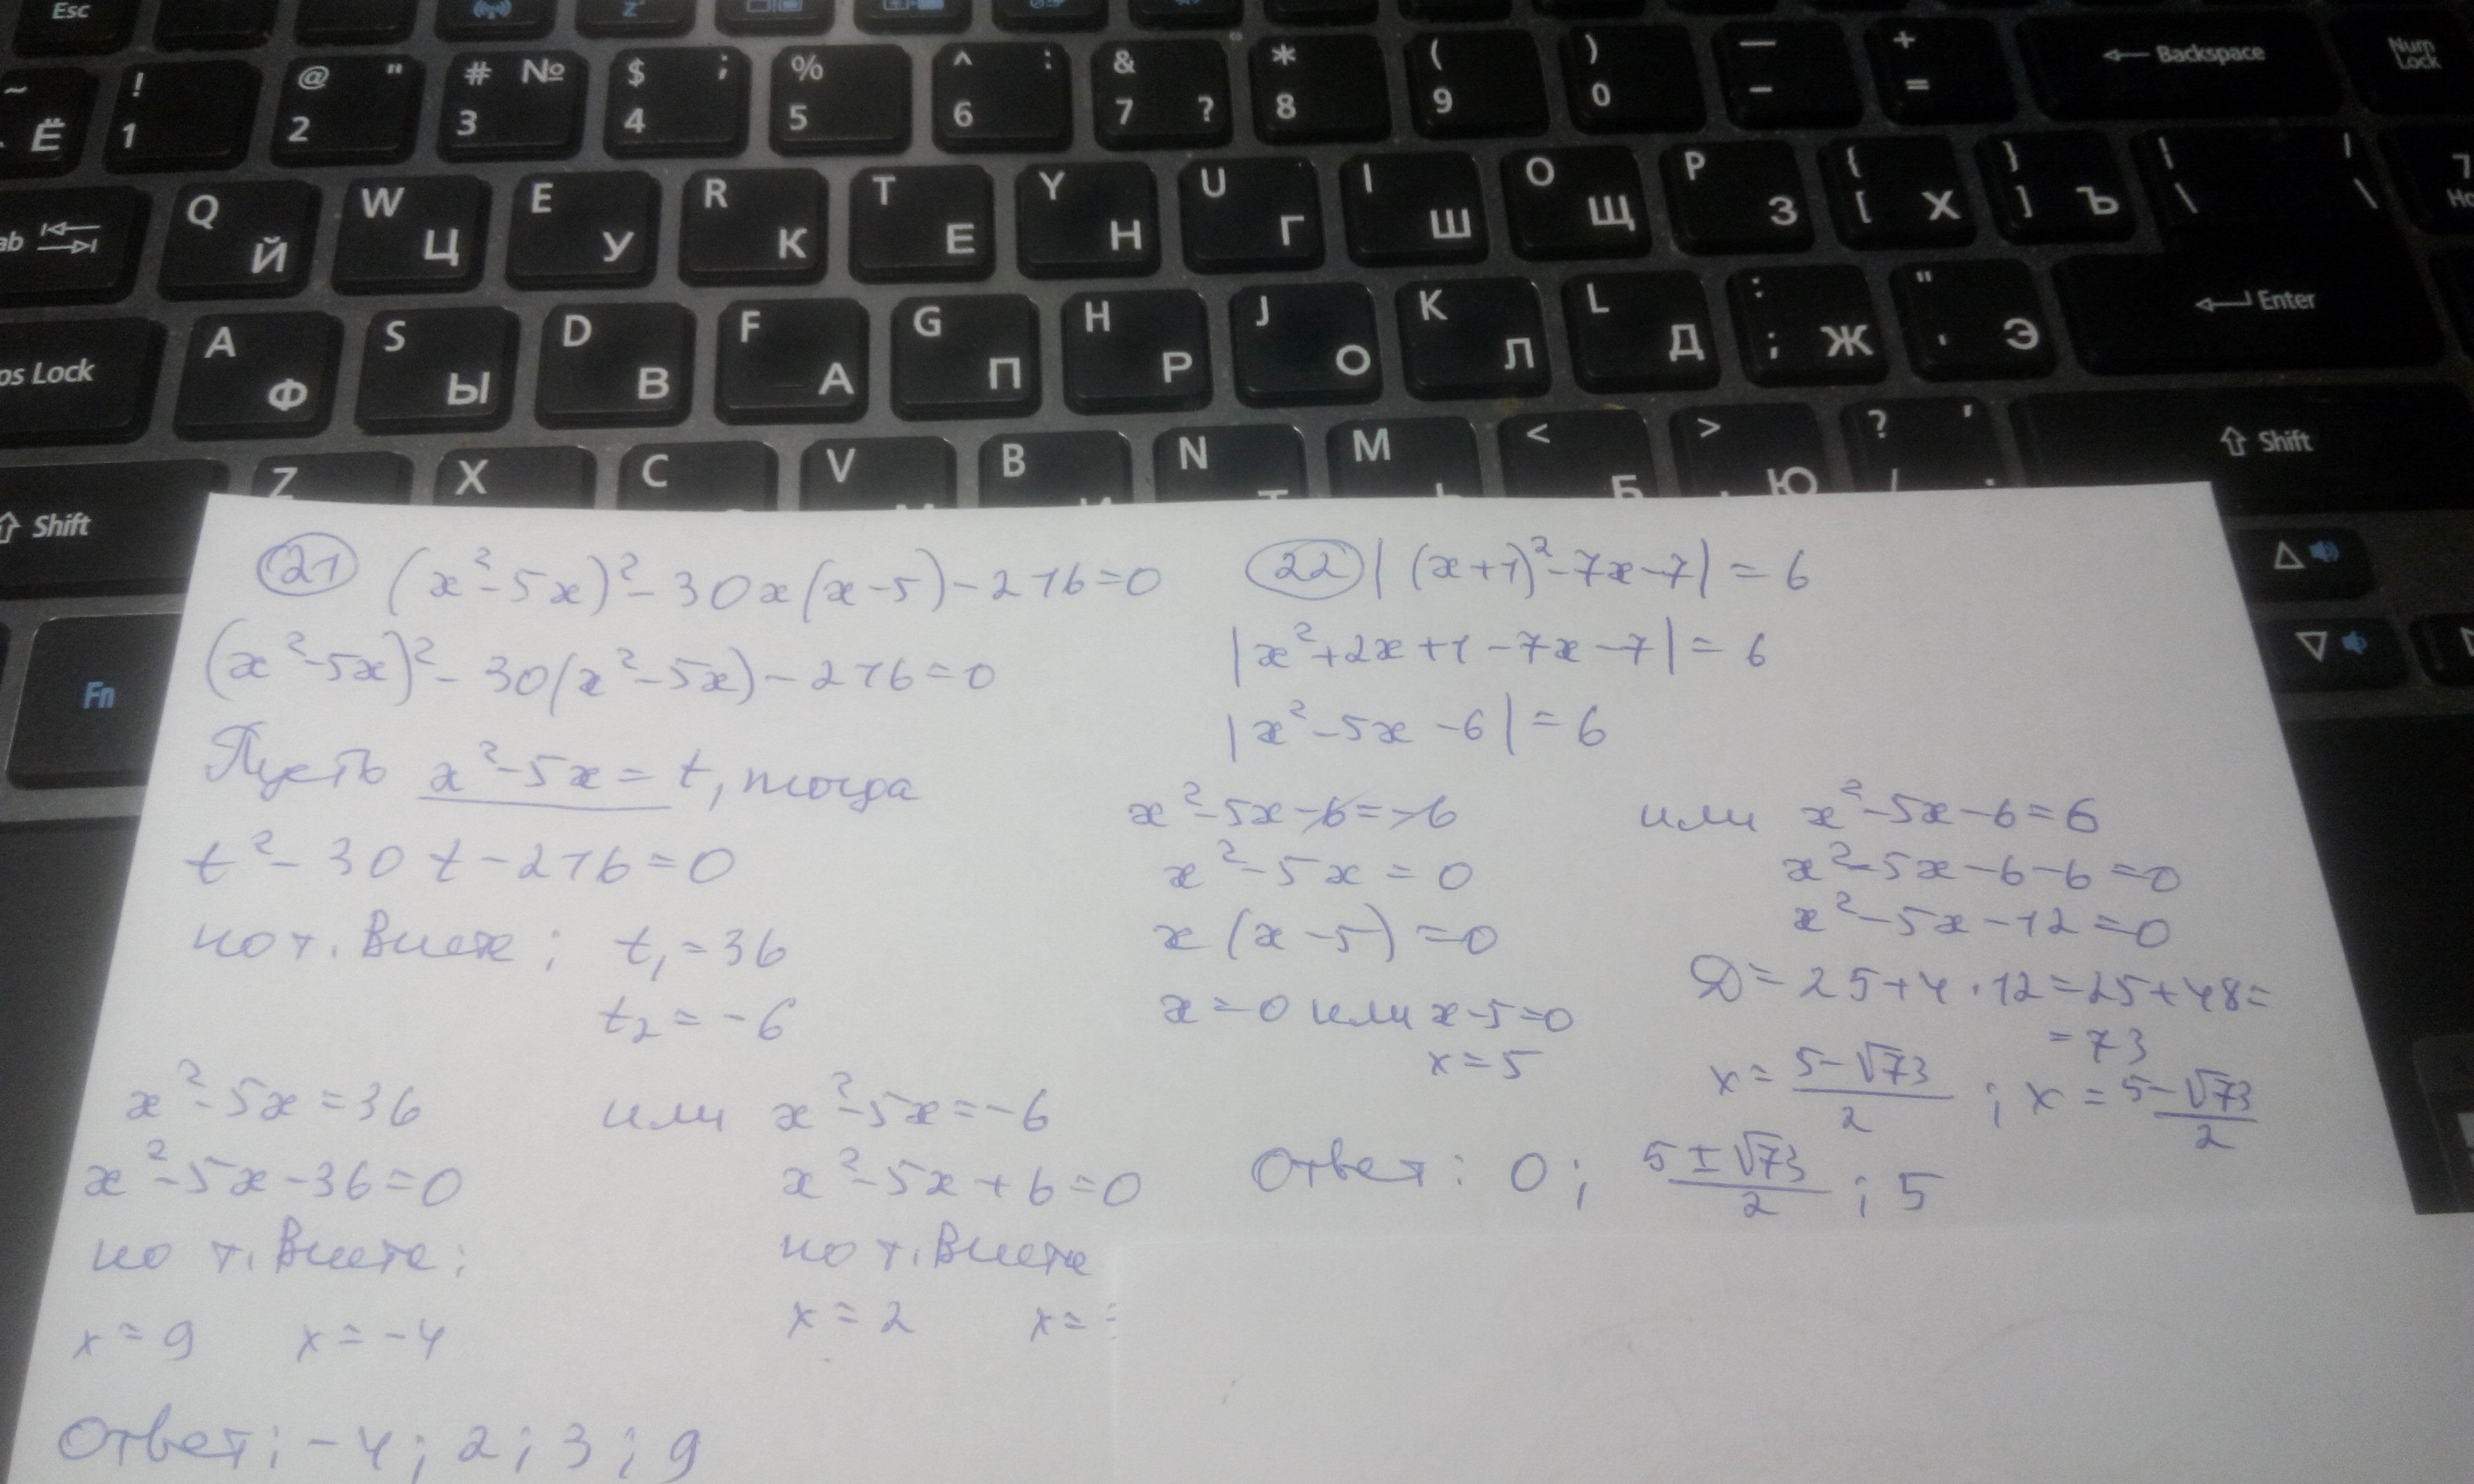 Esc
~ Ё ! 1 @ " 2 # № 3 $ ; 4 % 5 ^ : 6 & 7 ? * 8 ( 9 ) 0 — – + = ← Backspace Num Lock
ab Q Й W Ц E У R К T Е Y Н U Г I Ш O Щ P З { [ Х } ] Ъ | \ / \ 7
ps Lock A Ф S Ы D В F А G П H Р J О K Л L Д : ; Ж " ' Э Enter
Shift Z X C V B N M < Б > Ю ? / , . Shift
Fn
21 (x²-5x)²-30x(x-5)-216=0
(x²-5x)²-30(x²-5x)-216=0
Пусть x²-5x=t, тогда
t²-30t-216=0
по т. Виета: t₁=36
t₂=-6
x²-5x=36 или x²-5x=-6
x²-5x-36=0 x²-5x+6=0
по т. Виета: по т. Виета
x=9 x=-4 x=2 x=
Ответ: -4; 2; 3; 9
22 |(x+1)²-7x-7|=6
|x²+2x+1-7x-7|=6
|x²-5x-6|=6
x²-5x-6=-6 или x²-5x-6=6
x²-5x=0 x²-5x-6-6=0
x(x-5)=0 x²-5x-12=0
x=0 или x-5=0 D=25+4·12=25+48=
x=5 =73
x=(5-√73)/2 ; x=(5-√73)/2
Ответ: 0; (5±√73)/2 ; 5